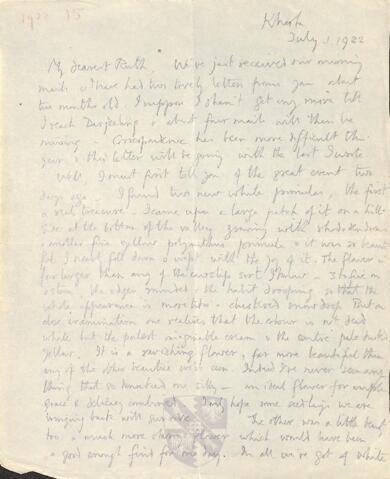 1922 15
Kharta
July 1 1922
My dearest Ruth We've just received our morning
mail & I have had two lovely letters from you about
two months old. I suppose I shan't get any more till
I reach Darjeeling & about four mails will then be
missing. Correspondence has been more difficult this
year & this letter will be going with the last I wrote
Well I must first tell you of the great event two
days ago. I found two new white primulas, the first
a real treasure. I came upon a large patch of it on a hill-
side at the bottom of the valley growing with rhododendrons
& another fine yellow polyanthus primula & it was so beautiful
that I nearly fell down & wept with the joy of it. The flower is
far larger than any of the cowslip sort I know - 3 to five on
a stem, the edges rounded, the habit drooping, so that the
whole appearance is more like a snowdrop. But on
close examination one realises that the colour is not dead
white but the palest imaginable cream & the centre pale
yellow. It is a ravishing flower, far more beautiful than
any of the other beauties we've seen. Indeed I've never seen
thing that so smacked one silly - an ideal flower for
grace & delicacy combined. I only hope some seedlings we are
bringing back will survive. The other was a little beauty
too & much more flower which would have been
a good enough find for one day. In all we've got of white